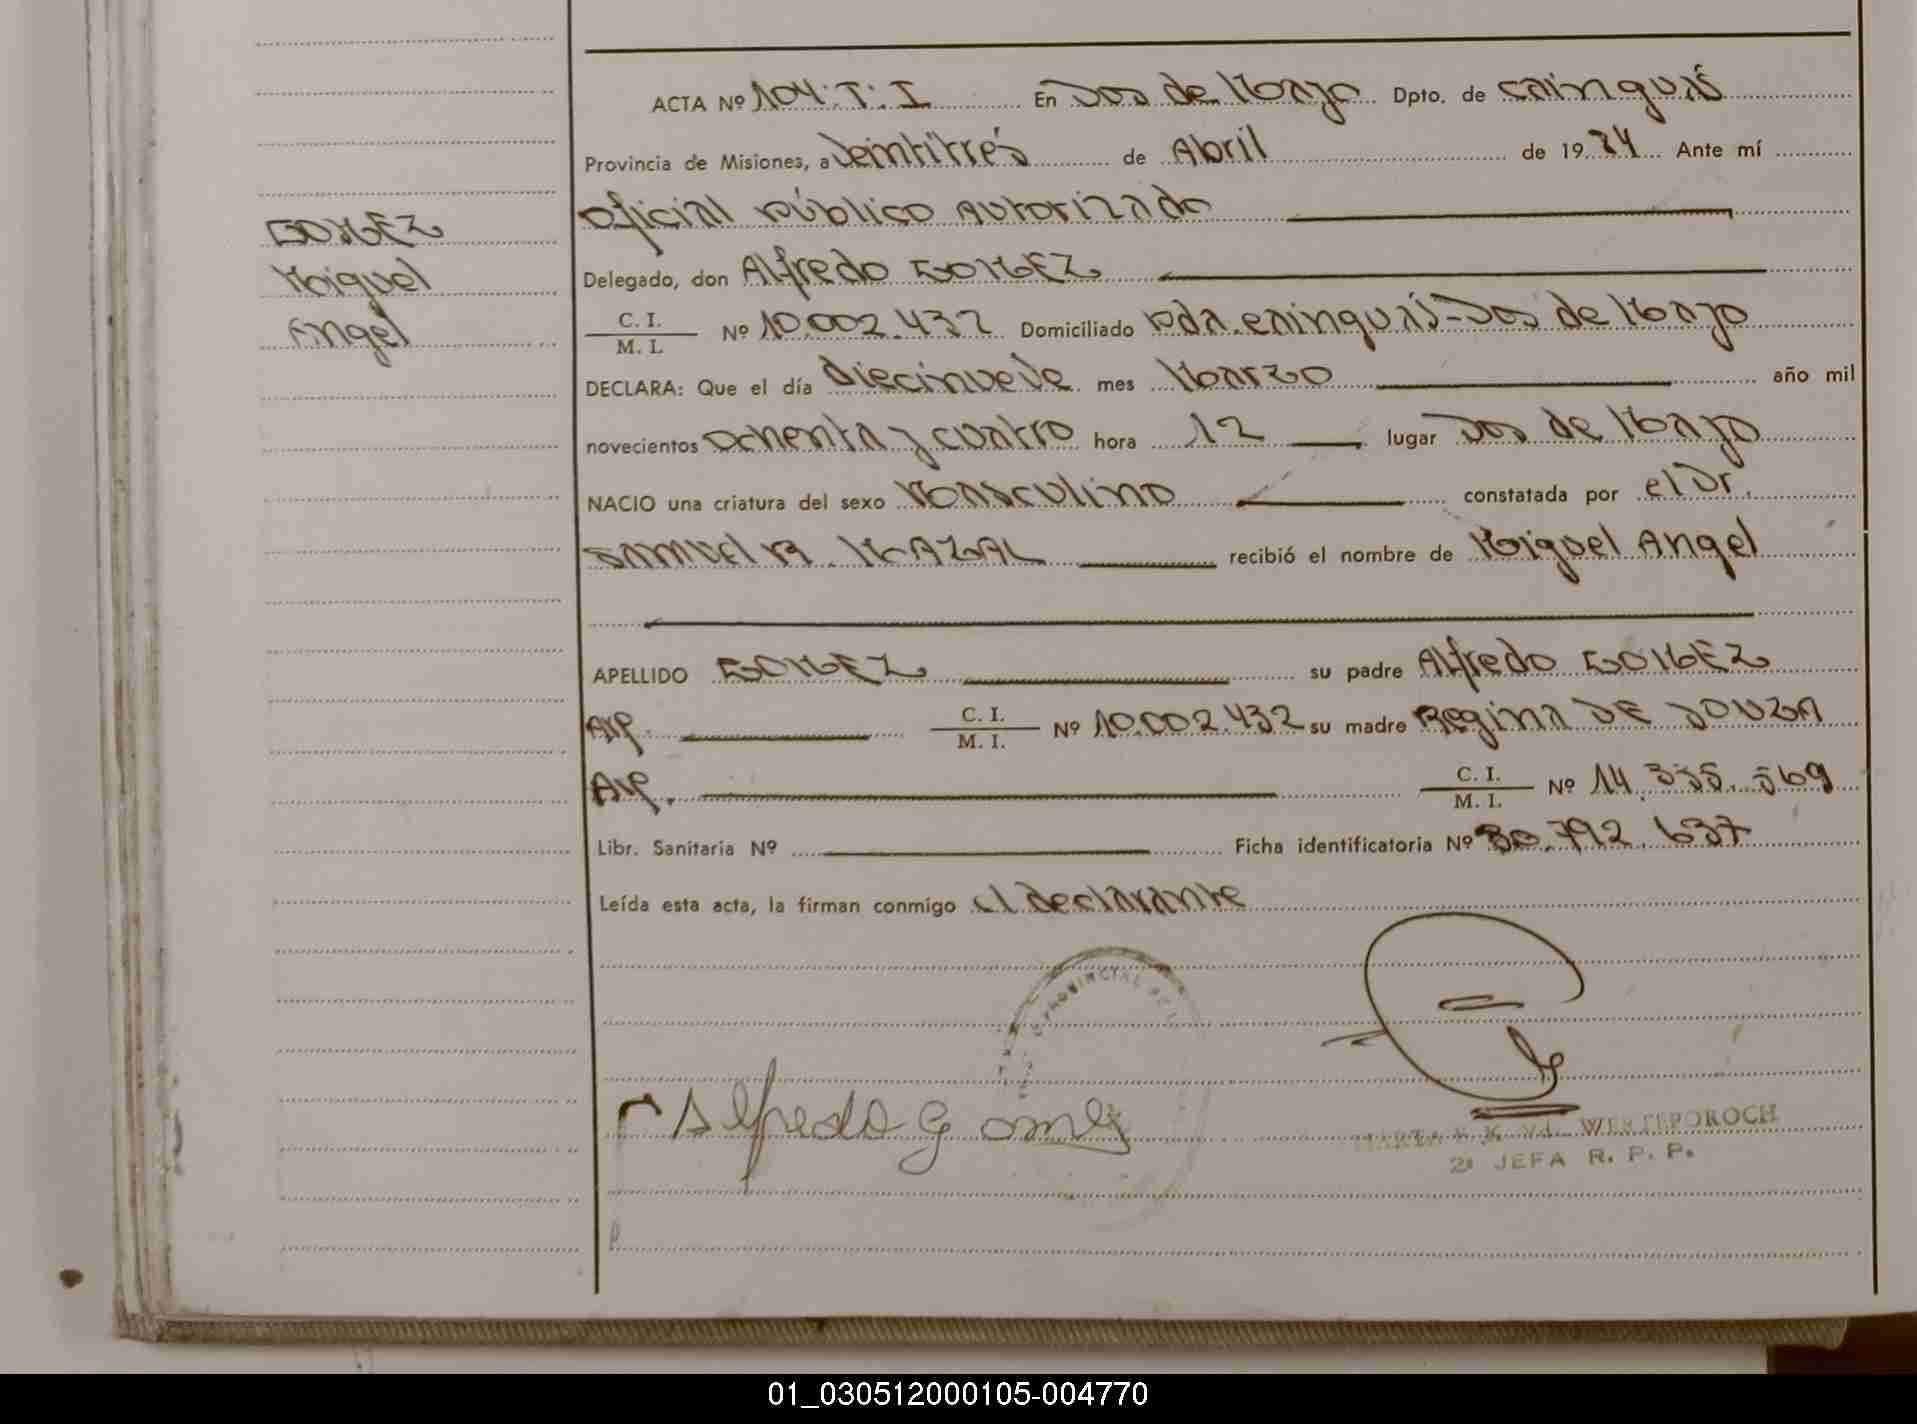 ACTA Nº 104. T. I En Dos de Mayo Dpto. de Cainguás
Provincia de Misiones, a Veintitrés de Abril de 1984 Ante mí
Oficial Público Autorizado
GOMEZ
Miguel
Angel
Delegado, don Alfredo GOMEZ
C. I.
M. I. Nº 10.002.432 Domiciliado Pda. Cainguás-Dos de Mayo
DECLARA: Que el día diecinueve mes Marzo año mil
novecientos ochenta y cuatro hora 12 lugar Dos de Mayo
NACIO una criatura del sexo Masculino constatada por el Dr.
SAMUEL recibió el nombre de Miguel Angel
APELLIDO GOMEZ su padre Alfredo GOMEZ
Arg. C. I.
M. I. Nº 10.002.432 su madre Regina DE SOUZA
Arg. C. I.
M. I. Nº 14.335.569
Libr. Sanitaria Nº Ficha identificatoria Nº 30.792.637
Leída esta acta, la firman conmigo el declarante
PROVINCIAL DE
Alfredo Gomez
WERTEPOROCH
JEFA R. P. P.
01_030512000105-004770